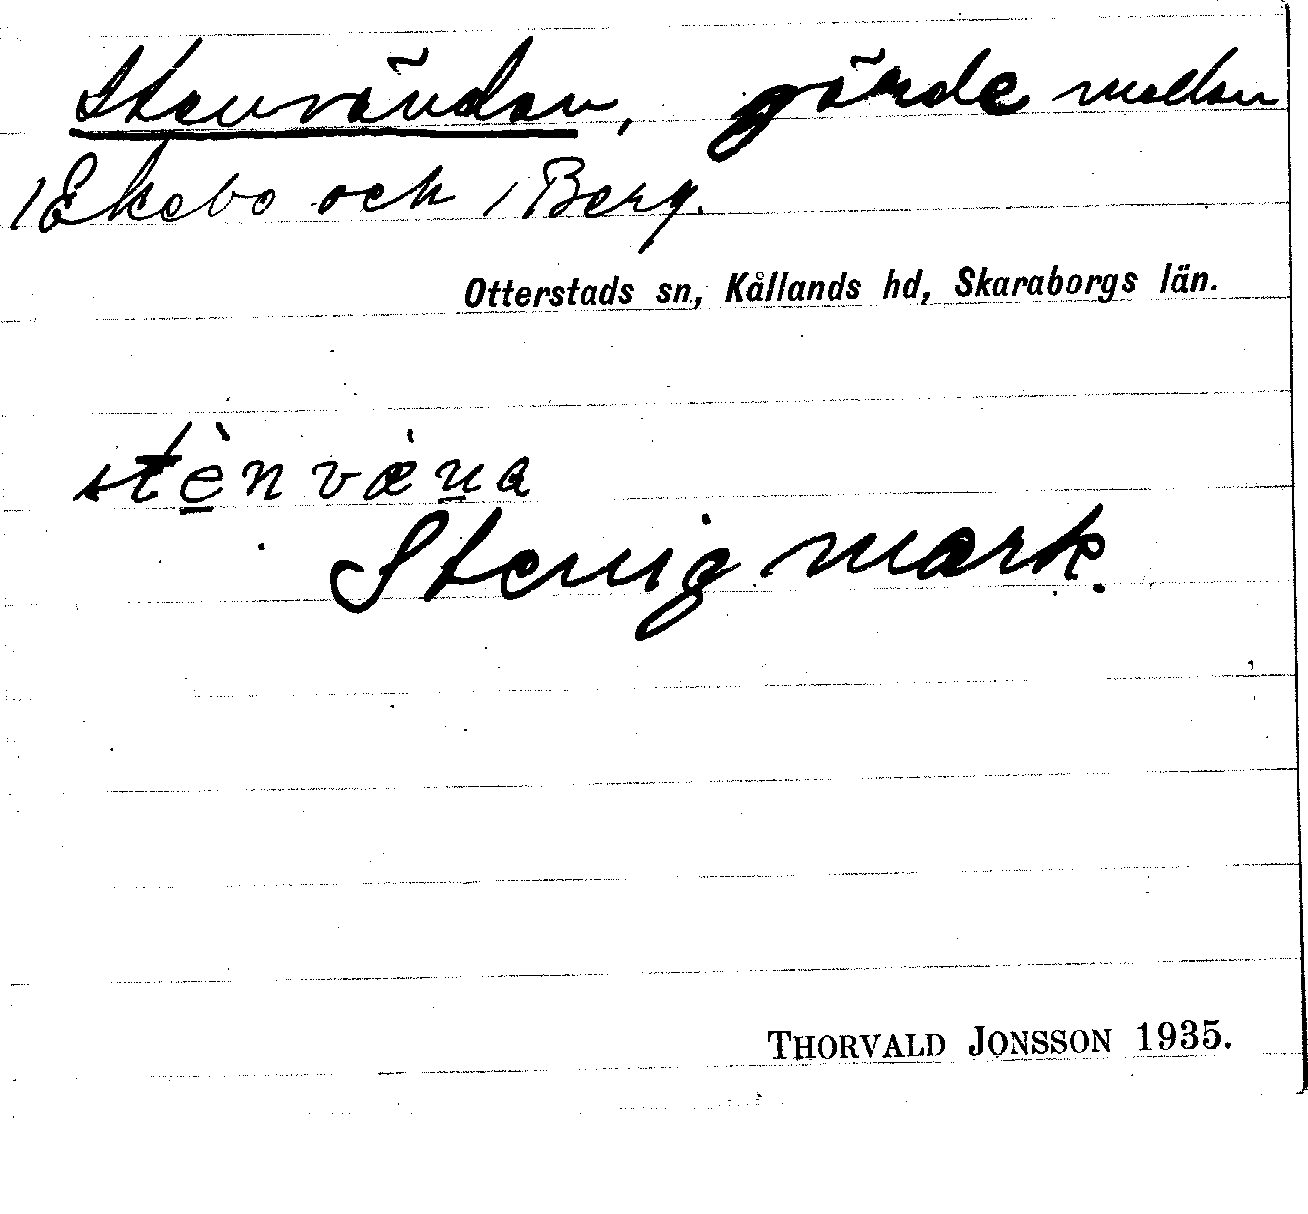 Stenvändan, gärde mellan
/Ekebo och /Berg.
Otterstads sn, Kållands hd, Skaraborgs län.
stènvæ̀na
Stenig mark.
THORVALD JONSSON 1935.